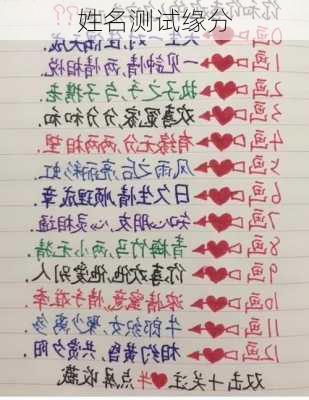 姓名测试缘分
0画 天生一对,佳偶天成.
1画 一见钟情,两情相悦.
2画 执子之手,与子携老.
3画 欢喜冤家,分分和和.
4画 有缘无分,两两相望.
5画 风雨之后,亮丽彩虹.
6画 日久生情,顺理成章.
7画 知心朋友,心灵相通.
8画 青梅竹马,两小无猜.
9画 你喜欢他,他爱别人.
10画 浓情蜜意,情子难牵.
11画 牛郎织女,聚少离多.
12画 相约黄昏,共赏夕阳.
双击+关注 点屏收藏.